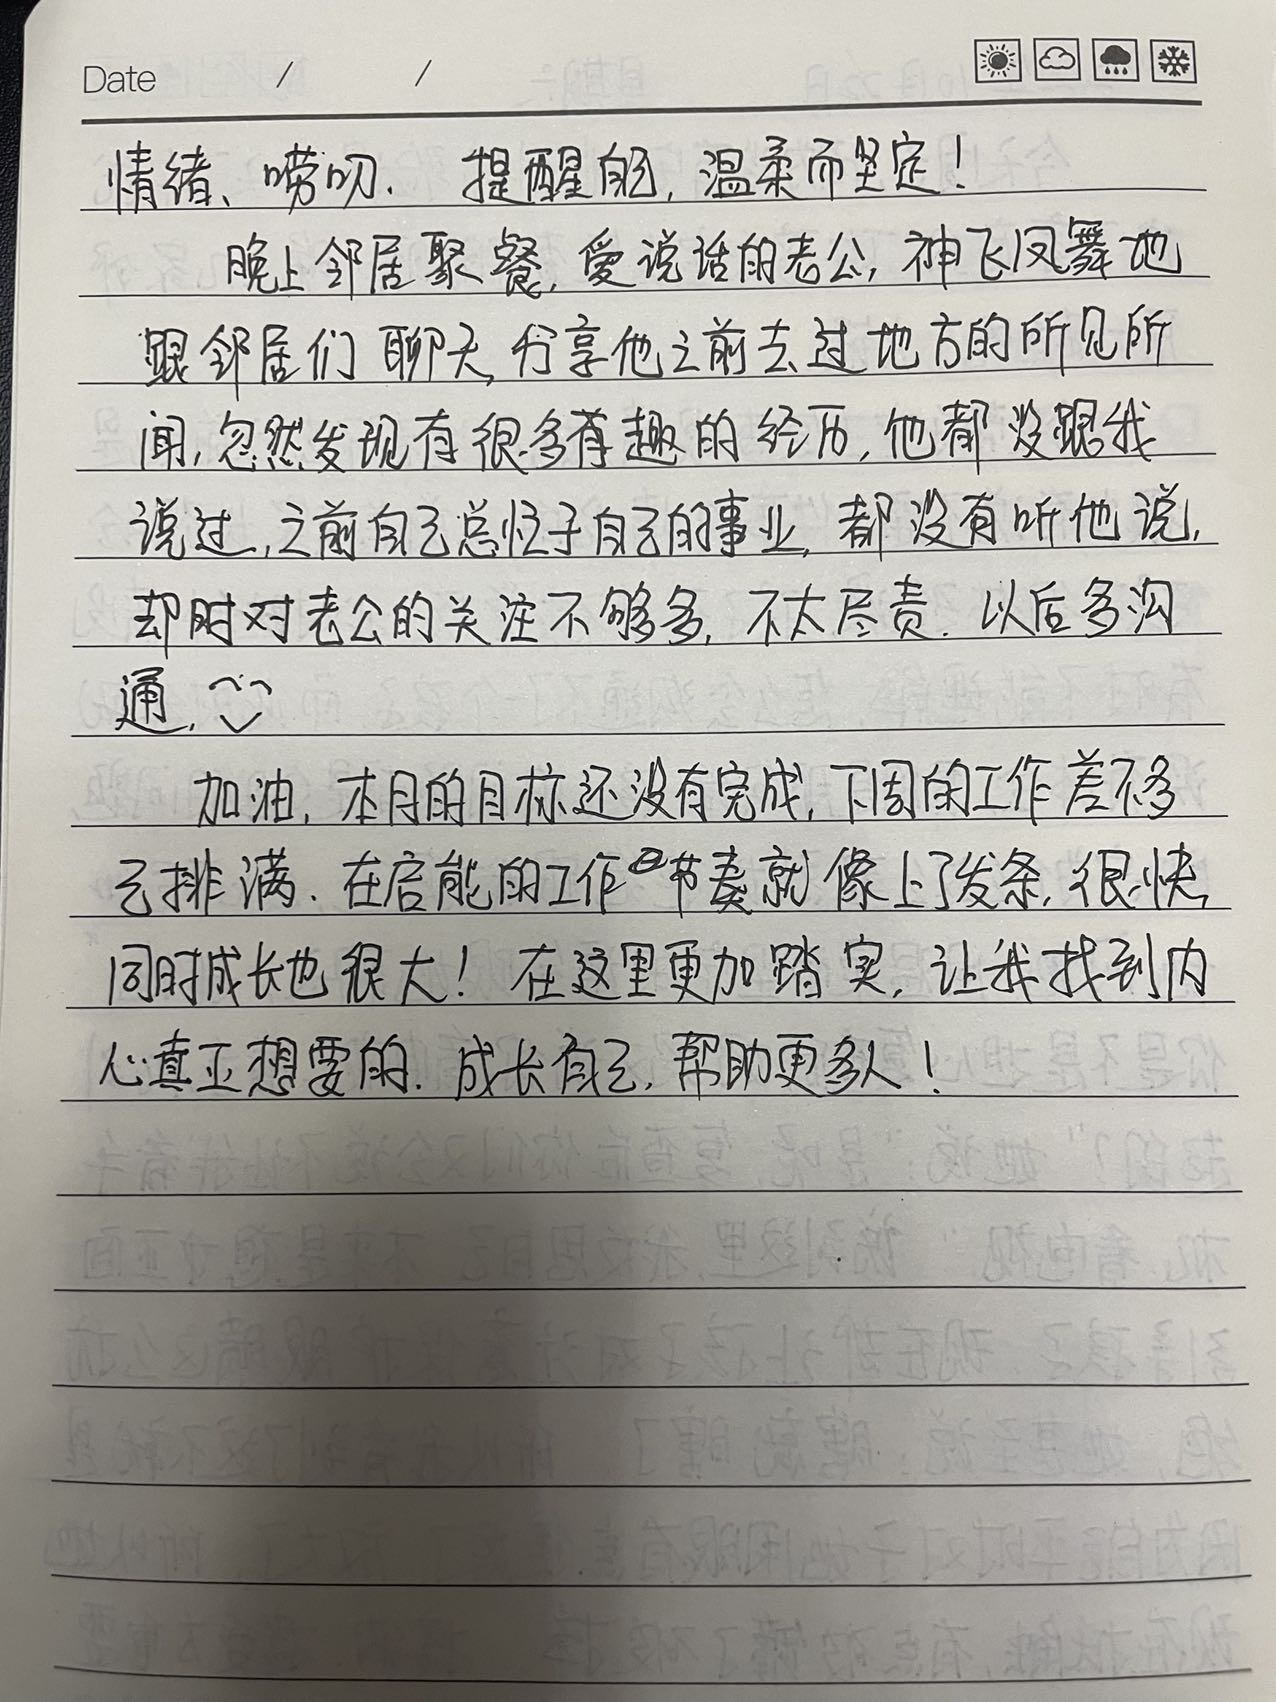 Date / /
情绪、唠叨. 提醒自己, 温柔而坚定!
晚上邻居聚餐, 爱说话的老公, 神飞凤舞地
跟邻居们聊天, 分享他之前去过地方的所见所
闻, 忽然发现有很多有趣的经历, 他都没跟我
说过, 之前自己总忙于自己的事业, 都没有听他说,
却时对老公的关注不够多, 不太尽责. 以后多沟
通.
加油, 本月的目标还没有完成, 下周的工作差不多
已排满. 在启能的工作节奏就像上了发条, 很快,
同时成长也很大! 在这里更加踏实, 让我找到内
心真正想要的. 成长自己, 帮助更多人!